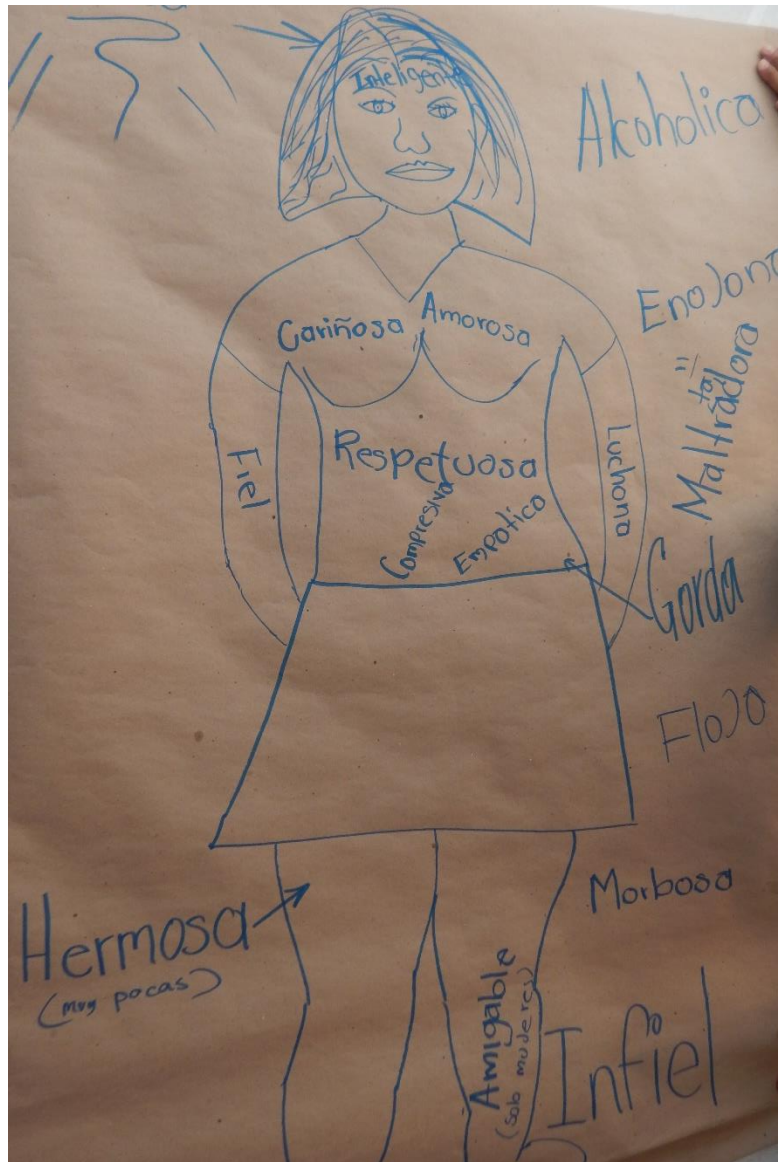 Inteligente
Alcoholica
Cariñosa Amorosa
Enojona
Maltra
ta
dora
Fiel
Respetuosa
Luchona
Compresiva
Empatico
Gorda
Flojo
Morbosa
Hermosa
(muy pocas)
Amigable
(sob mujeres)
Infiel